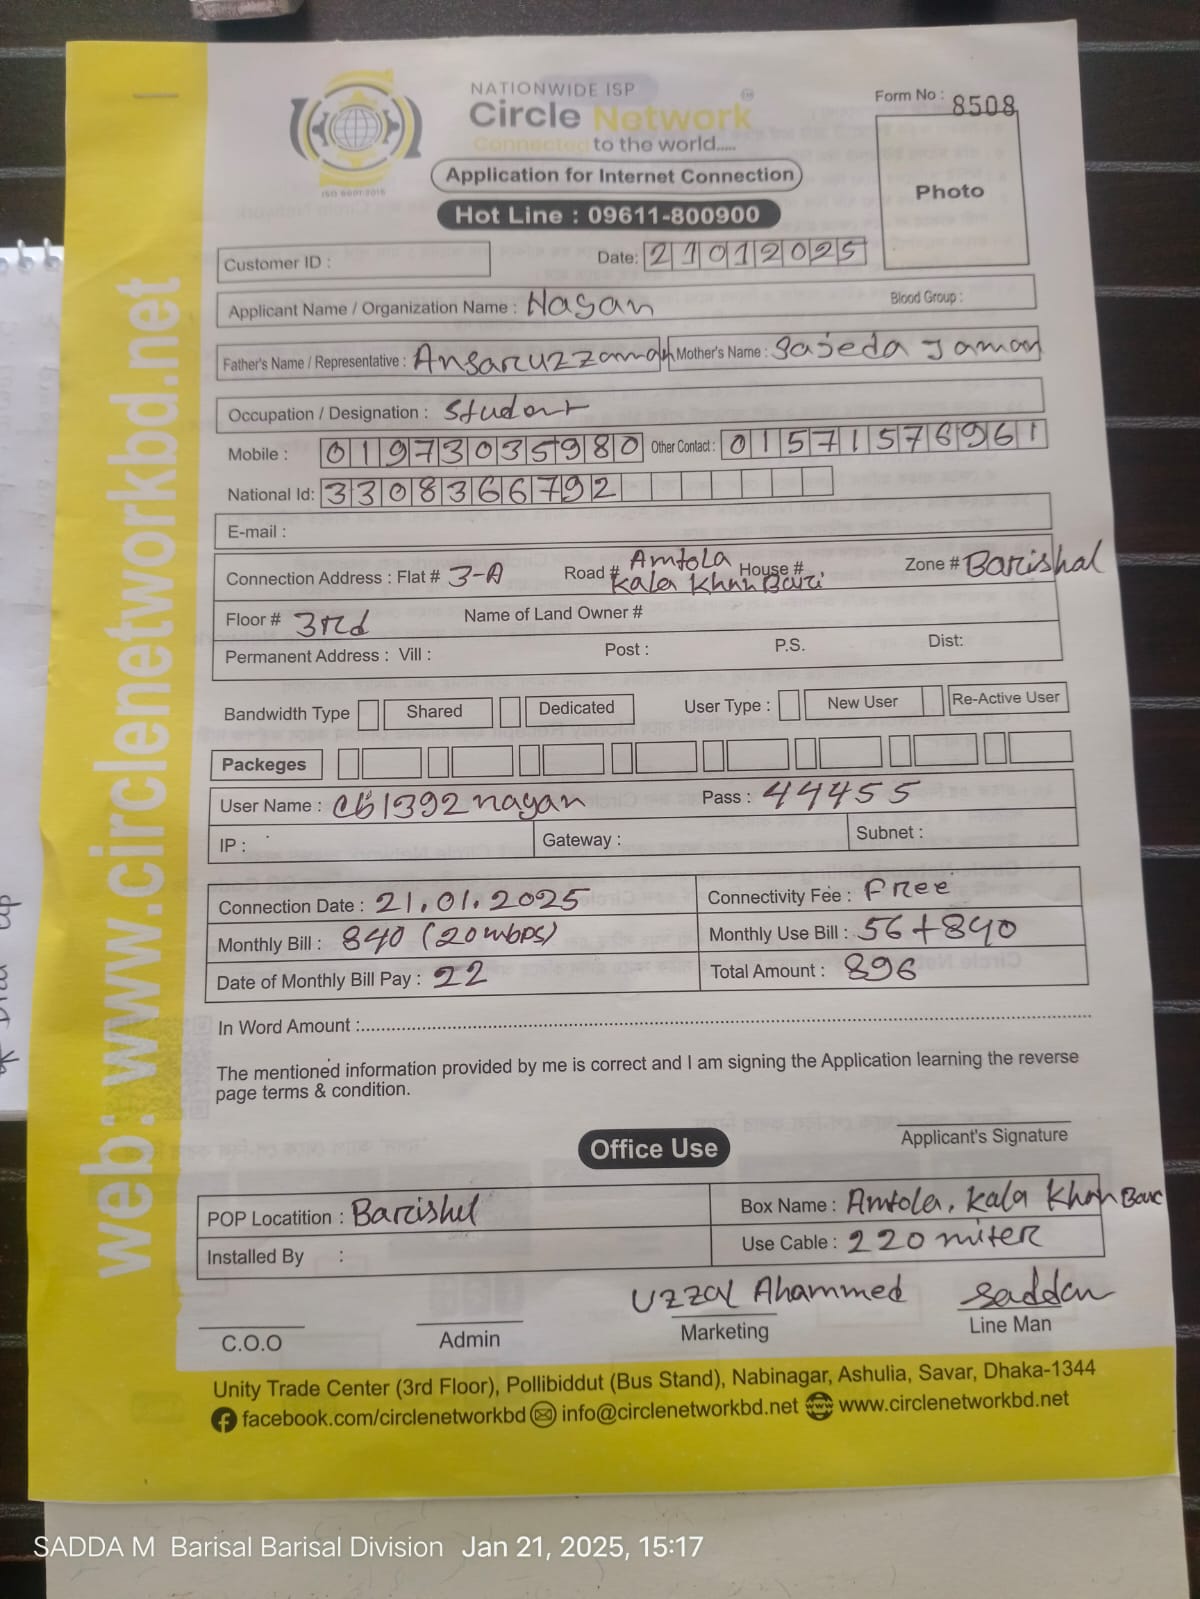 NATIONWIDE ISP
Circle Network
Connected to the world.....
ISO 9001:2015
Form No : 8508
Application for Internet Connection
Photo
Hot Line : 09611-800900
Customer ID :
Date: 21012025
Applicant Name / Organization Name : Nayan
Blood Group :
Father's Name / Representative : Ansaruzzaman Mother's Name : Sajeda Jaman
Occupation / Designation : Student
Mobile : 01973035980 Other Contact : 01571576961
National Id: 3308366792
E-mail :
Connection Address : Flat # 3-A Road # Amtola House # Zone # Barishal
Kala Khan Bari
Floor # 3rd Name of Land Owner #
Permanent Address : Vill : Post : P.S. Dist:
Bandwidth Type Shared Dedicated User Type : New User Re-Active User
Packeges
User Name : cb1392nayan Pass : 44455
IP : Gateway : Subnet :
Connection Date : 21.01.2025 Connectivity Fee : Free
Monthly Bill : 840 (20mbps) Monthly Use Bill : 56+840
Date of Monthly Bill Pay : 22 Total Amount : 896
In Word Amount :
The mentioned information provided by me is correct and I am signing the Application learning the reverse
page terms & condition.
Applicant's Signature
Office Use
POP Locatition : Barishal Box Name : Amtola, Kala Khan Bari
Installed By : Use Cable : 220 miter
Uzzal Ahammed Saddam
C.O.O Admin Marketing Line Man
Unity Trade Center (3rd Floor), Pollibiddut (Bus Stand), Nabinagar, Ashulia, Savar, Dhaka-1344
facebook.com/circlenetworkbd info@circlenetworkbd.net www.circlenetworkbd.net
web: www.circlenetworkbd.net
SADDA M Barisal Barisal Division Jan 21, 2025, 15:17